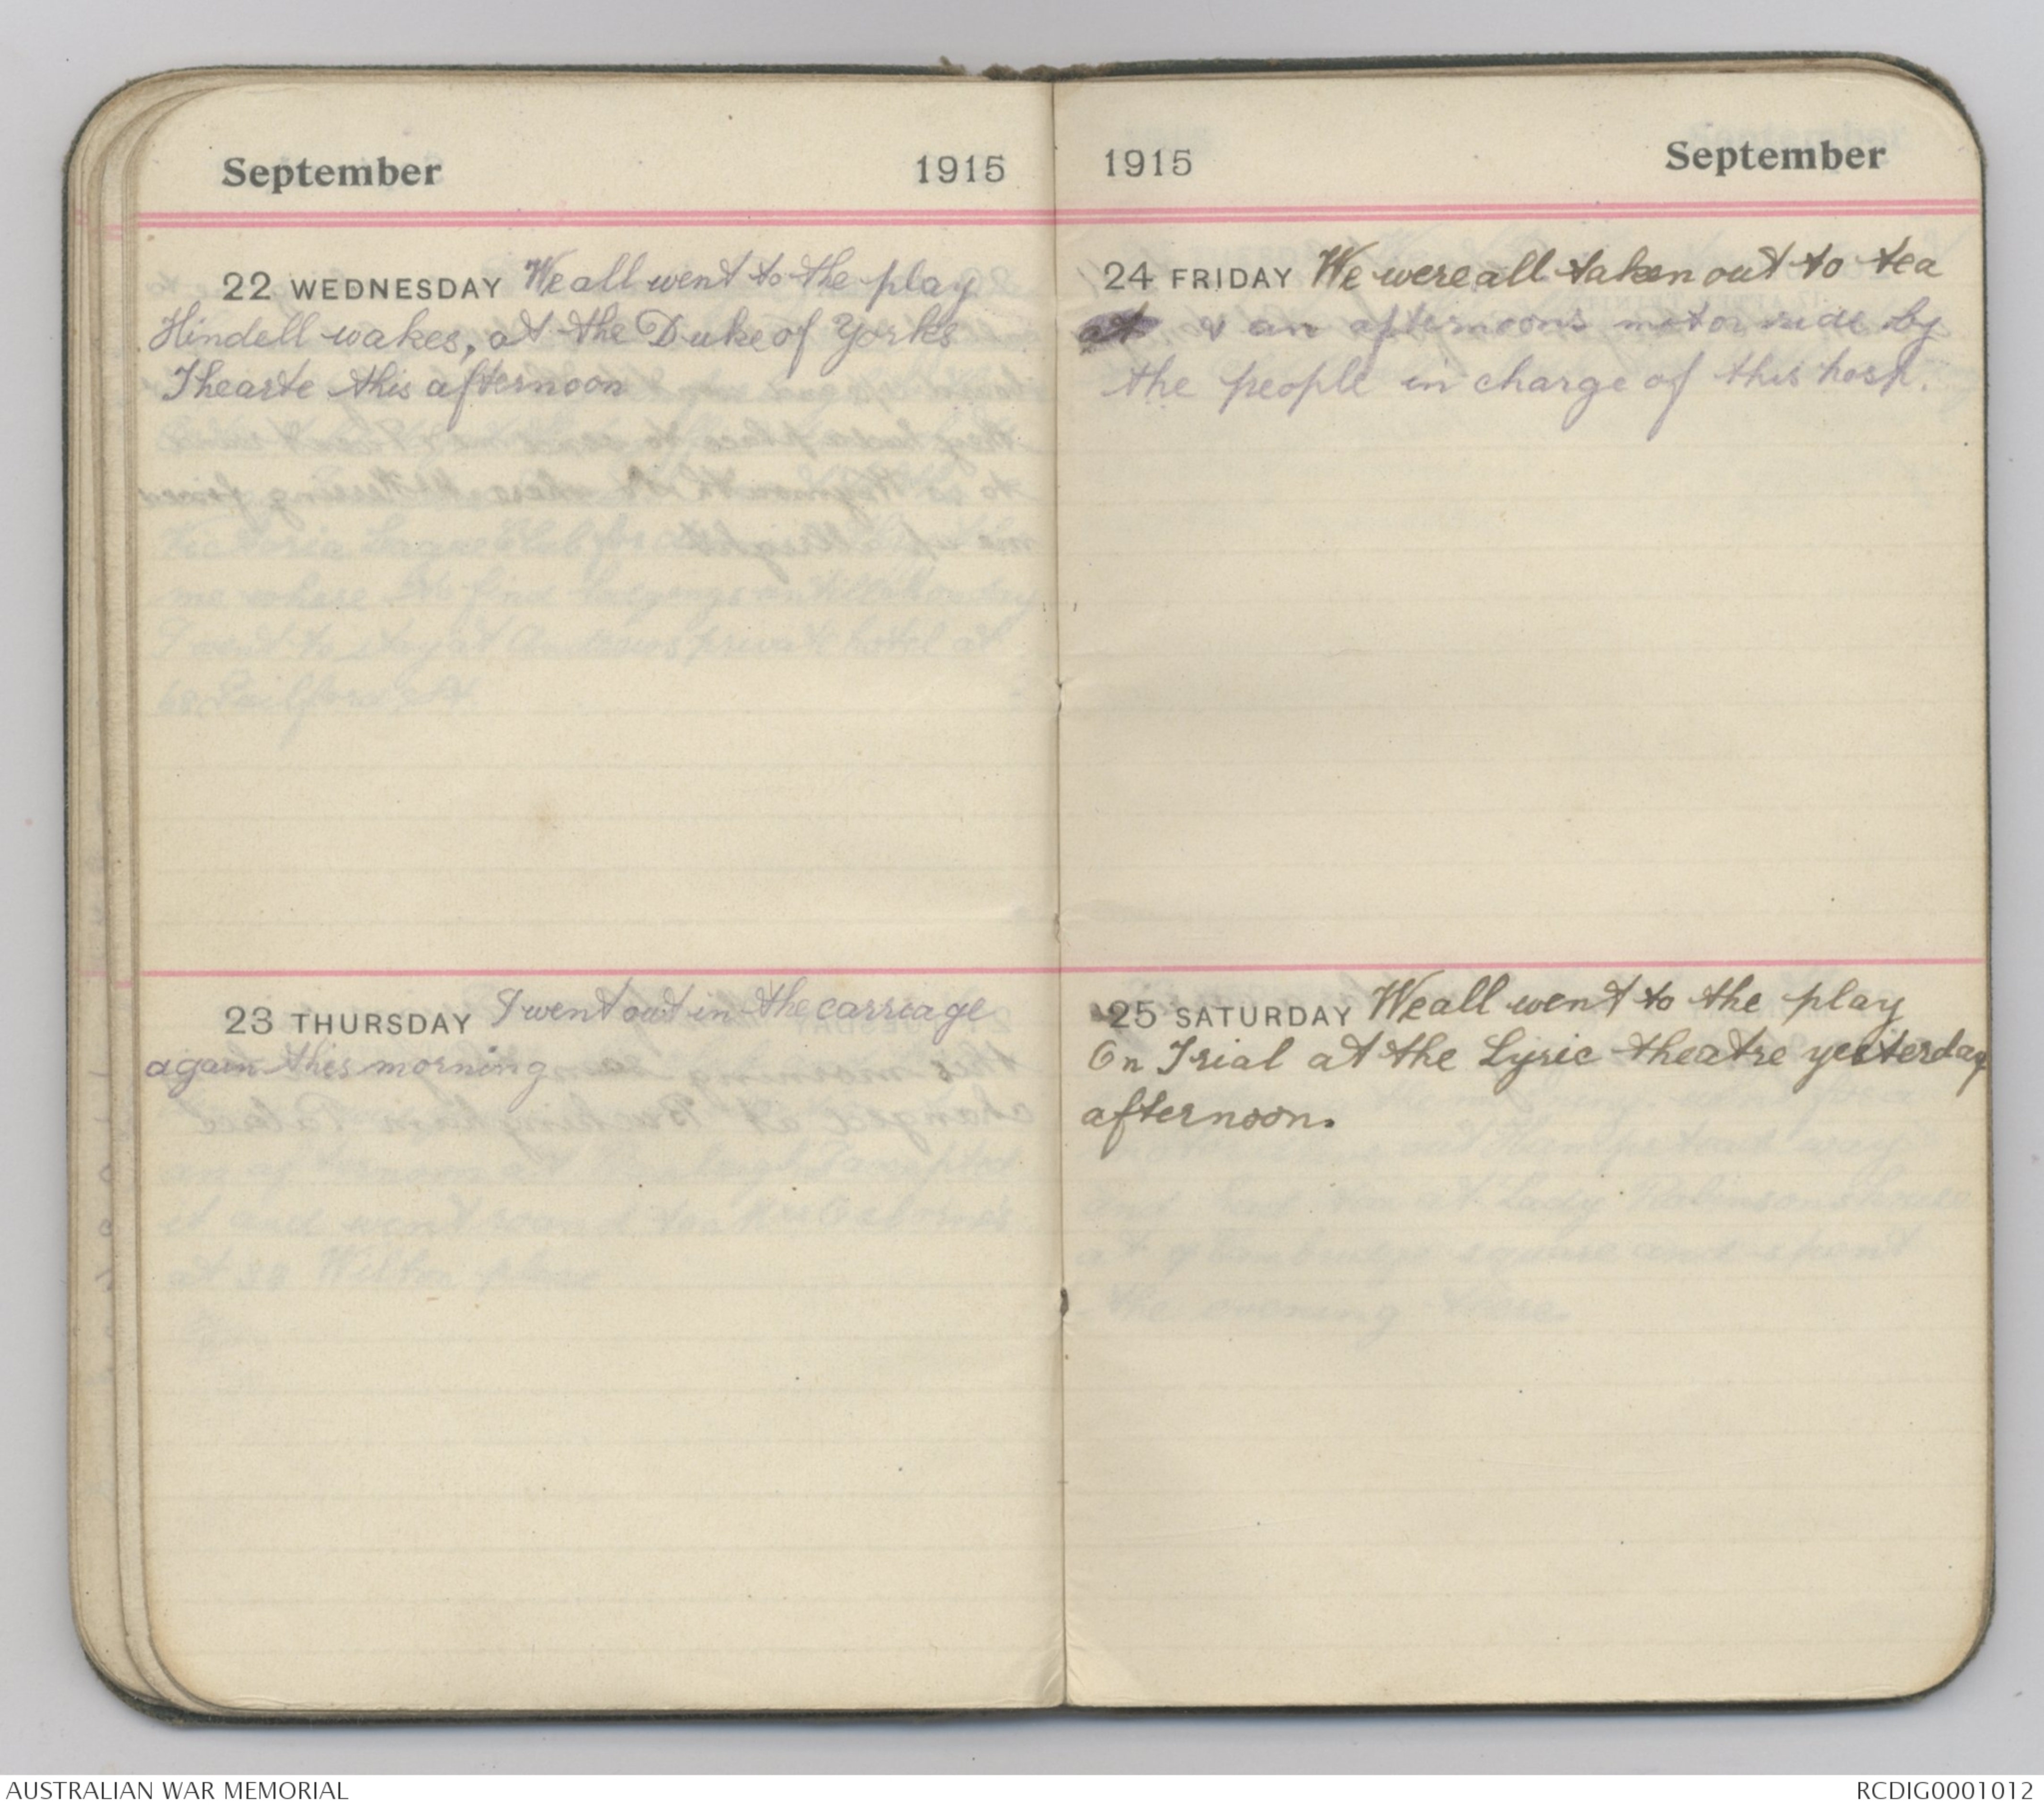 September 1915
22 WEDNESDAY We all went to the play
Hindell wakes, at the Duke of Yorks
Thearte this afternoon
23 THURSDAY I went out in the carriage
again this morning
1915 September
24 FRIDAY We were all taken out to tea
at & an afternoons motor ride by
the people in charge of this hosp.
25 SATURDAY We all went to the play
On Trial at the Lyric theatre yesterday
afternoon.
AUSTRALIAN WAR MEMORIAL
RCDIG0001012